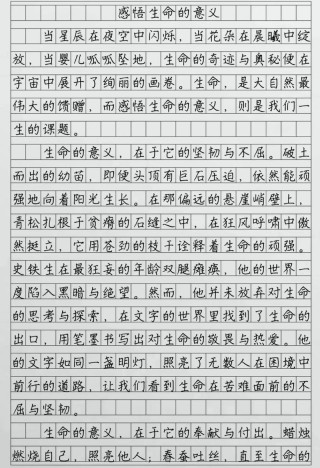 感悟生命的意义
当星辰在夜空中闪烁，当花朵在晨曦中绽
放，当婴儿呱呱坠地，生命的奇迹与奥秘便在
宇宙中展开了绚丽的画卷。生命，是大自然最
伟大的馈赠，而感悟生命的意义，则是我们一
生的课题。
生命的意义，在于它的坚韧与不屈。破土
而出的幼苗，即使头顶有巨石压迫，依然能顽
强地向着阳光生长。在那偏远的悬崖峭壁上，
青松扎根于贫瘠的石缝之中，在狂风呼啸中傲
然挺立，它用苍劲的枝干诠释着生命的顽强。
史铁生在最狂妄的年龄双腿瘫痪，他的世界一
度陷入黑暗与绝望。然而，他并未放弃对生命
的思考与探索，在文字的世界里找到了生命的
出口，用笔墨书写出对生命的敬畏与热爱。他
的文字如同一盏明灯，照亮了无数人在困境中
前行的道路，让我们看到生命在苦难面前的不
屈与坚韧。
生命的意义，在于它的奉献与付出。蜡烛
燃烧自己，照亮他人；春蚕吐丝，直至生命的